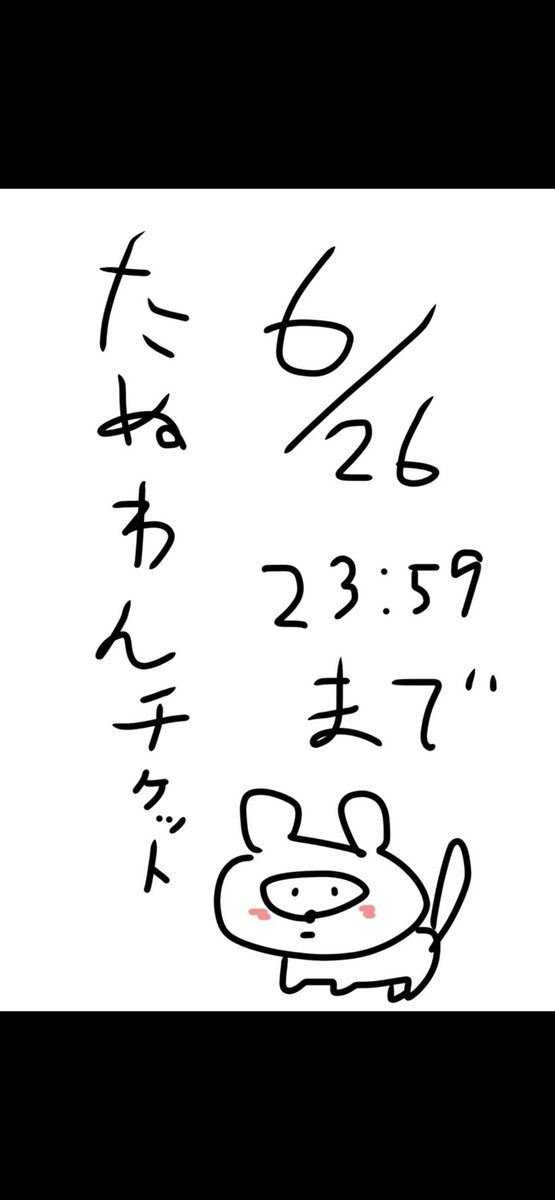 たぬわんチケット
6/26
23:59
まで